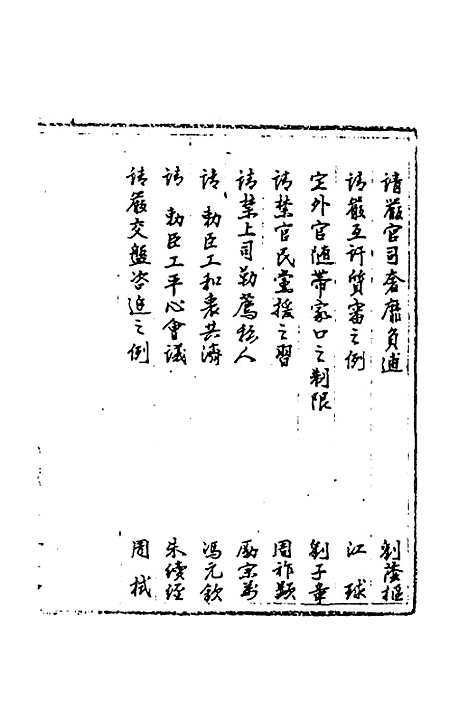 請嚴官司奢靡負逋 劉蔭樞
請嚴互訐質審之例 江球
定外官随帶家口之制限 劉子章
請禁官民黨援之習 周祚顯
請禁上司勒薦私人 勵宗萬
請勅臣工和衷共濟 馮元欽
請勅臣工平心會議 朱續經
請嚴交盤咨追之例 周栻